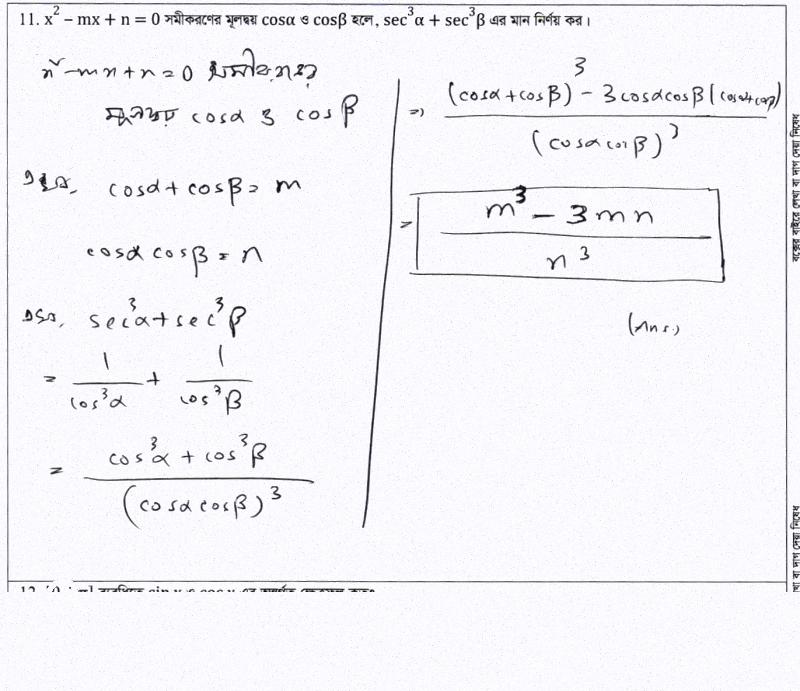 11. x² − mx + n = 0 সমীকরণের মূলদ্বয় cosα ও cosβ হলে, sec³α + sec³β এর মান নির্ণয় কর।
x² - mx + n = 0 সমীকরণের
মূলদ্বয় cosα ও cosβ
cosα + cosβ = m
cosα cosβ = n
sec³α + sec³β
= 1/cos³α + 1/cos³β
= (cos³α + cos³β)/(cosα cosβ)³
=> ((cosα + cosβ)³ - 3cosαcosβ(cosα+cosβ))/(cosα cosβ)³
= (m³ - 3mn)/n³
(Ans.)
বক্সের বাইরে লেখা বা দাগ দেয়া নিষেধ
খা বা দাগ দেয়া নিষেধ